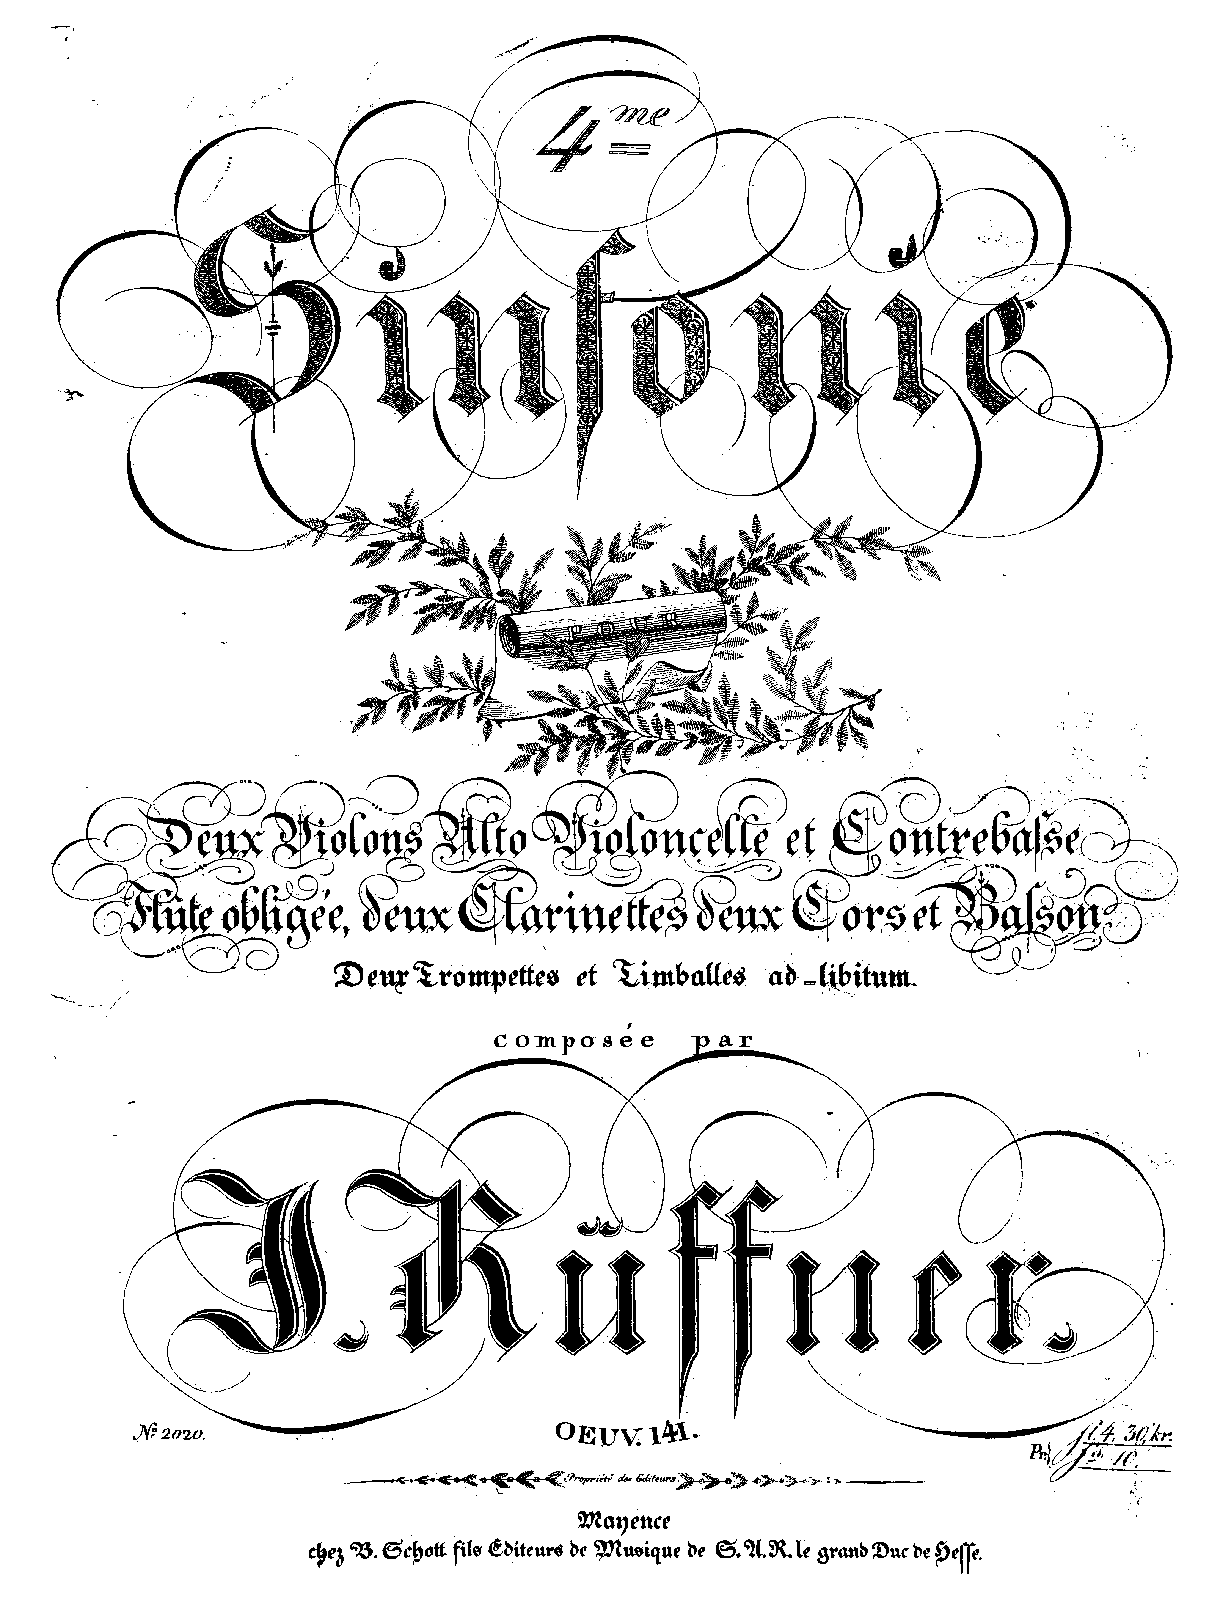 4me
Sinfonie
POUR
Deux Violons Alto Violoncelle et Contrebaſse
Flûte obligée, deux Clarinettes deux Cors et Baſson
Deux Trompettes et Timballes ad-libitum.
composée par
J. Küffner.
No 2020.
OEUV. 141.
Pr. fl. 4. 30. kr.
fr. 10.
Propriété des Editeurs
Mayence
chez B. Schott fils Editeurs de Musique de S. A. R. le grand Duc de Heſſe.